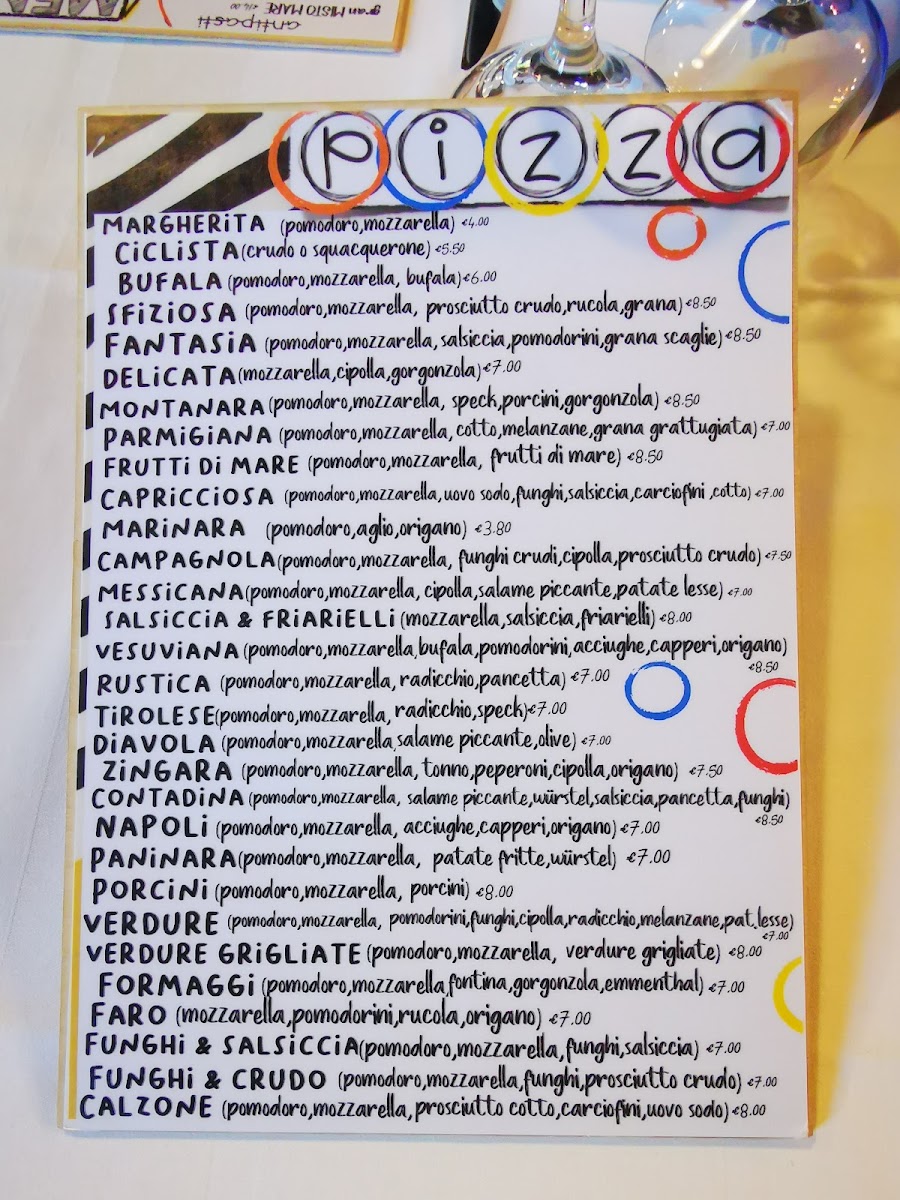 antipasti
gran MISTO MARE €16.00
pizza
MARGHERITA (pomodoro,mozzarella) €4.00
CICLISTA(crudo o squacquerone) €5.50
BUFALA (pomodoro,mozzarella, bufala)€6.00
SFIZIOSA (pomodoro,mozzarella, prosciutto crudo,rucola,grana) €8.50
FANTASIA (pomodoro,mozzarella,salsiccia,pomodorini,grana scaglie) €8.50
DELICATA(mozzarella,cipolla,gorgonzola)€7.00
MONTANARA(pomodoro,mozzarella, speck,porcini,gorgonzola) €8.50
PARMIGIANA (pomodoro,mozzarella,cotto,melanzane,grana grattugiata) €7.00
FRUTTI DI MARE (pomodoro,mozzarella, frutti di mare) €8.50
CAPRICCIOSA (pomodoro,mozzarella,uovo sodo,funghi,salsiccia,carciofini ,cotto) €7.00
MARINARA (pomodoro,aglio,origano) €3.80
CAMPAGNOLA(pomodoro,mozzarella, funghi crudi,cipolla,prosciutto crudo) €7.50
MESSICANA(pomodoro,mozzarella, cipolla,salame piccante,patate lesse) €7.00
SALSICCIA & FRIARIELLI (mozzarella,salsiccia,friarielli) €8.00
VESUVIANA(pomodoro,mozzarella,bufala,pomodorini,acciughe,capperi,origano)
€8.50
RUSTICA (pomodoro,mozzarella,radicchio,pancetta) €7.00
TIROLESE(pomodoro,mozzarella,radicchio,speck)€7.00
DIAVOLA (pomodoro,mozzarella,salame piccante,olive) €7.00
ZINGARA (pomodoro,mozzarella,tonno,peperoni,cipolla,origano) €7.50
CONTADINA(pomodoro,mozzarella, salame piccante,würstel,salsiccia,pancetta,funghi)
€8.50
NAPOLI (pomodoro,mozzarella, acciughe,capperi,origano) €7.00
PANINARA(pomodoro,mozzarella, patate fritte,würstel) €7.00
PORCINI (pomodoro,mozzarella, porcini) €8.00
VERDURE (pomodoro,mozzarella, pomodorini,funghi,cipolla,radicchio,melanzane,pat.lesse)
€7.00
VERDURE GRIGLIATE (pomodoro,mozzarella, verdure grigliate) €8.00
FORMAGGI (pomodoro,mozzarella,fontina,gorgonzola,emmenthal) €7.00
FARO (mozzarella,pomodorini,rucola,origano) €7.00
FUNGHI & SALSICCIA(pomodoro,mozzarella,funghi,salsiccia) €7.00
FUNGHI & CRUDO (pomodoro,mozzarella,funghi,prosciutto crudo) €7.00
CALZONE (pomodoro,mozzarella,prosciutto cotto,carciofini,uovo sodo) €8.00